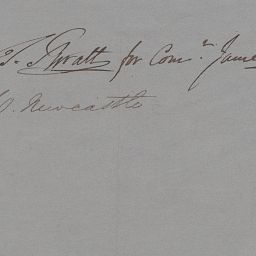 T. Thratt for Comr. James
Newcastle